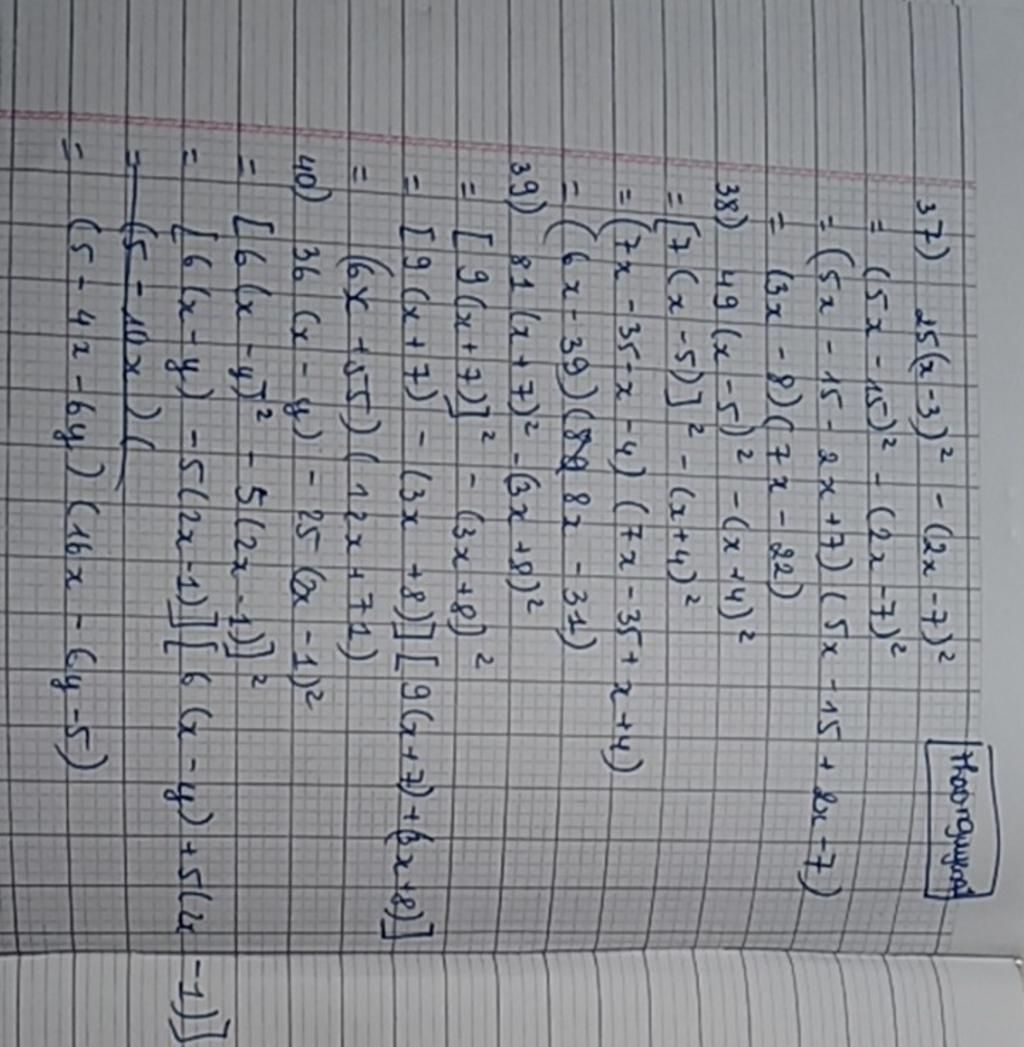 thaonguyen
37) 25(x-3)² - (2x-7)²
= (5x-15)² - (2x-7)²
= (5x-15-2x+7)(5x-15+2x-7)
= (3x-8)(7x-22)
38) 49(x-5)² - (x+4)²
= [7(x-5)]² - (x+4)²
= (7x-35-x-4)(7x-35+x+4)
= (6x-39)(8x-31)
39) 81(x+7)² - (3x+8)²
= [9(x+7)]² - (3x+8)²
= [9(x+7) - (3x+8)][9(x+7)+(3x+8)]
= (6x+55)(12x+71)
40) 36(x-y) - 25(2x-1)²
= [6(x-y)² - 5(2x-1)]²
= [6(x-y) - 5(2x-1)][6(x-y)+5(2x-1)]
= (5-10x)(
= (5-4x-6y)(16x-6y-5)